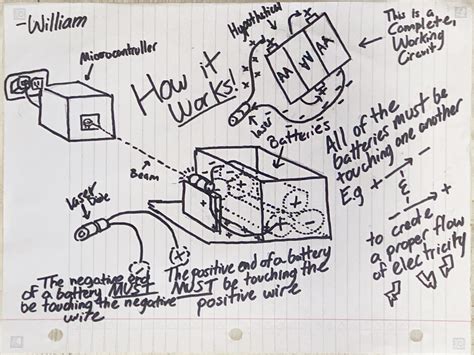 -William
Microcontroller
How it
Works!
Hypothetical
laser
AA
AA
This is a
Complete,
Working
Circuit
Batteries
Beam
laser
All of the
batteries must be
touching one another
E.g + -
- +
to create
a proper flow
of electricity
The negative end
of a battery MUST
be touching the negative
wire
The positive end of a battery
MUST be touching the
positive wire